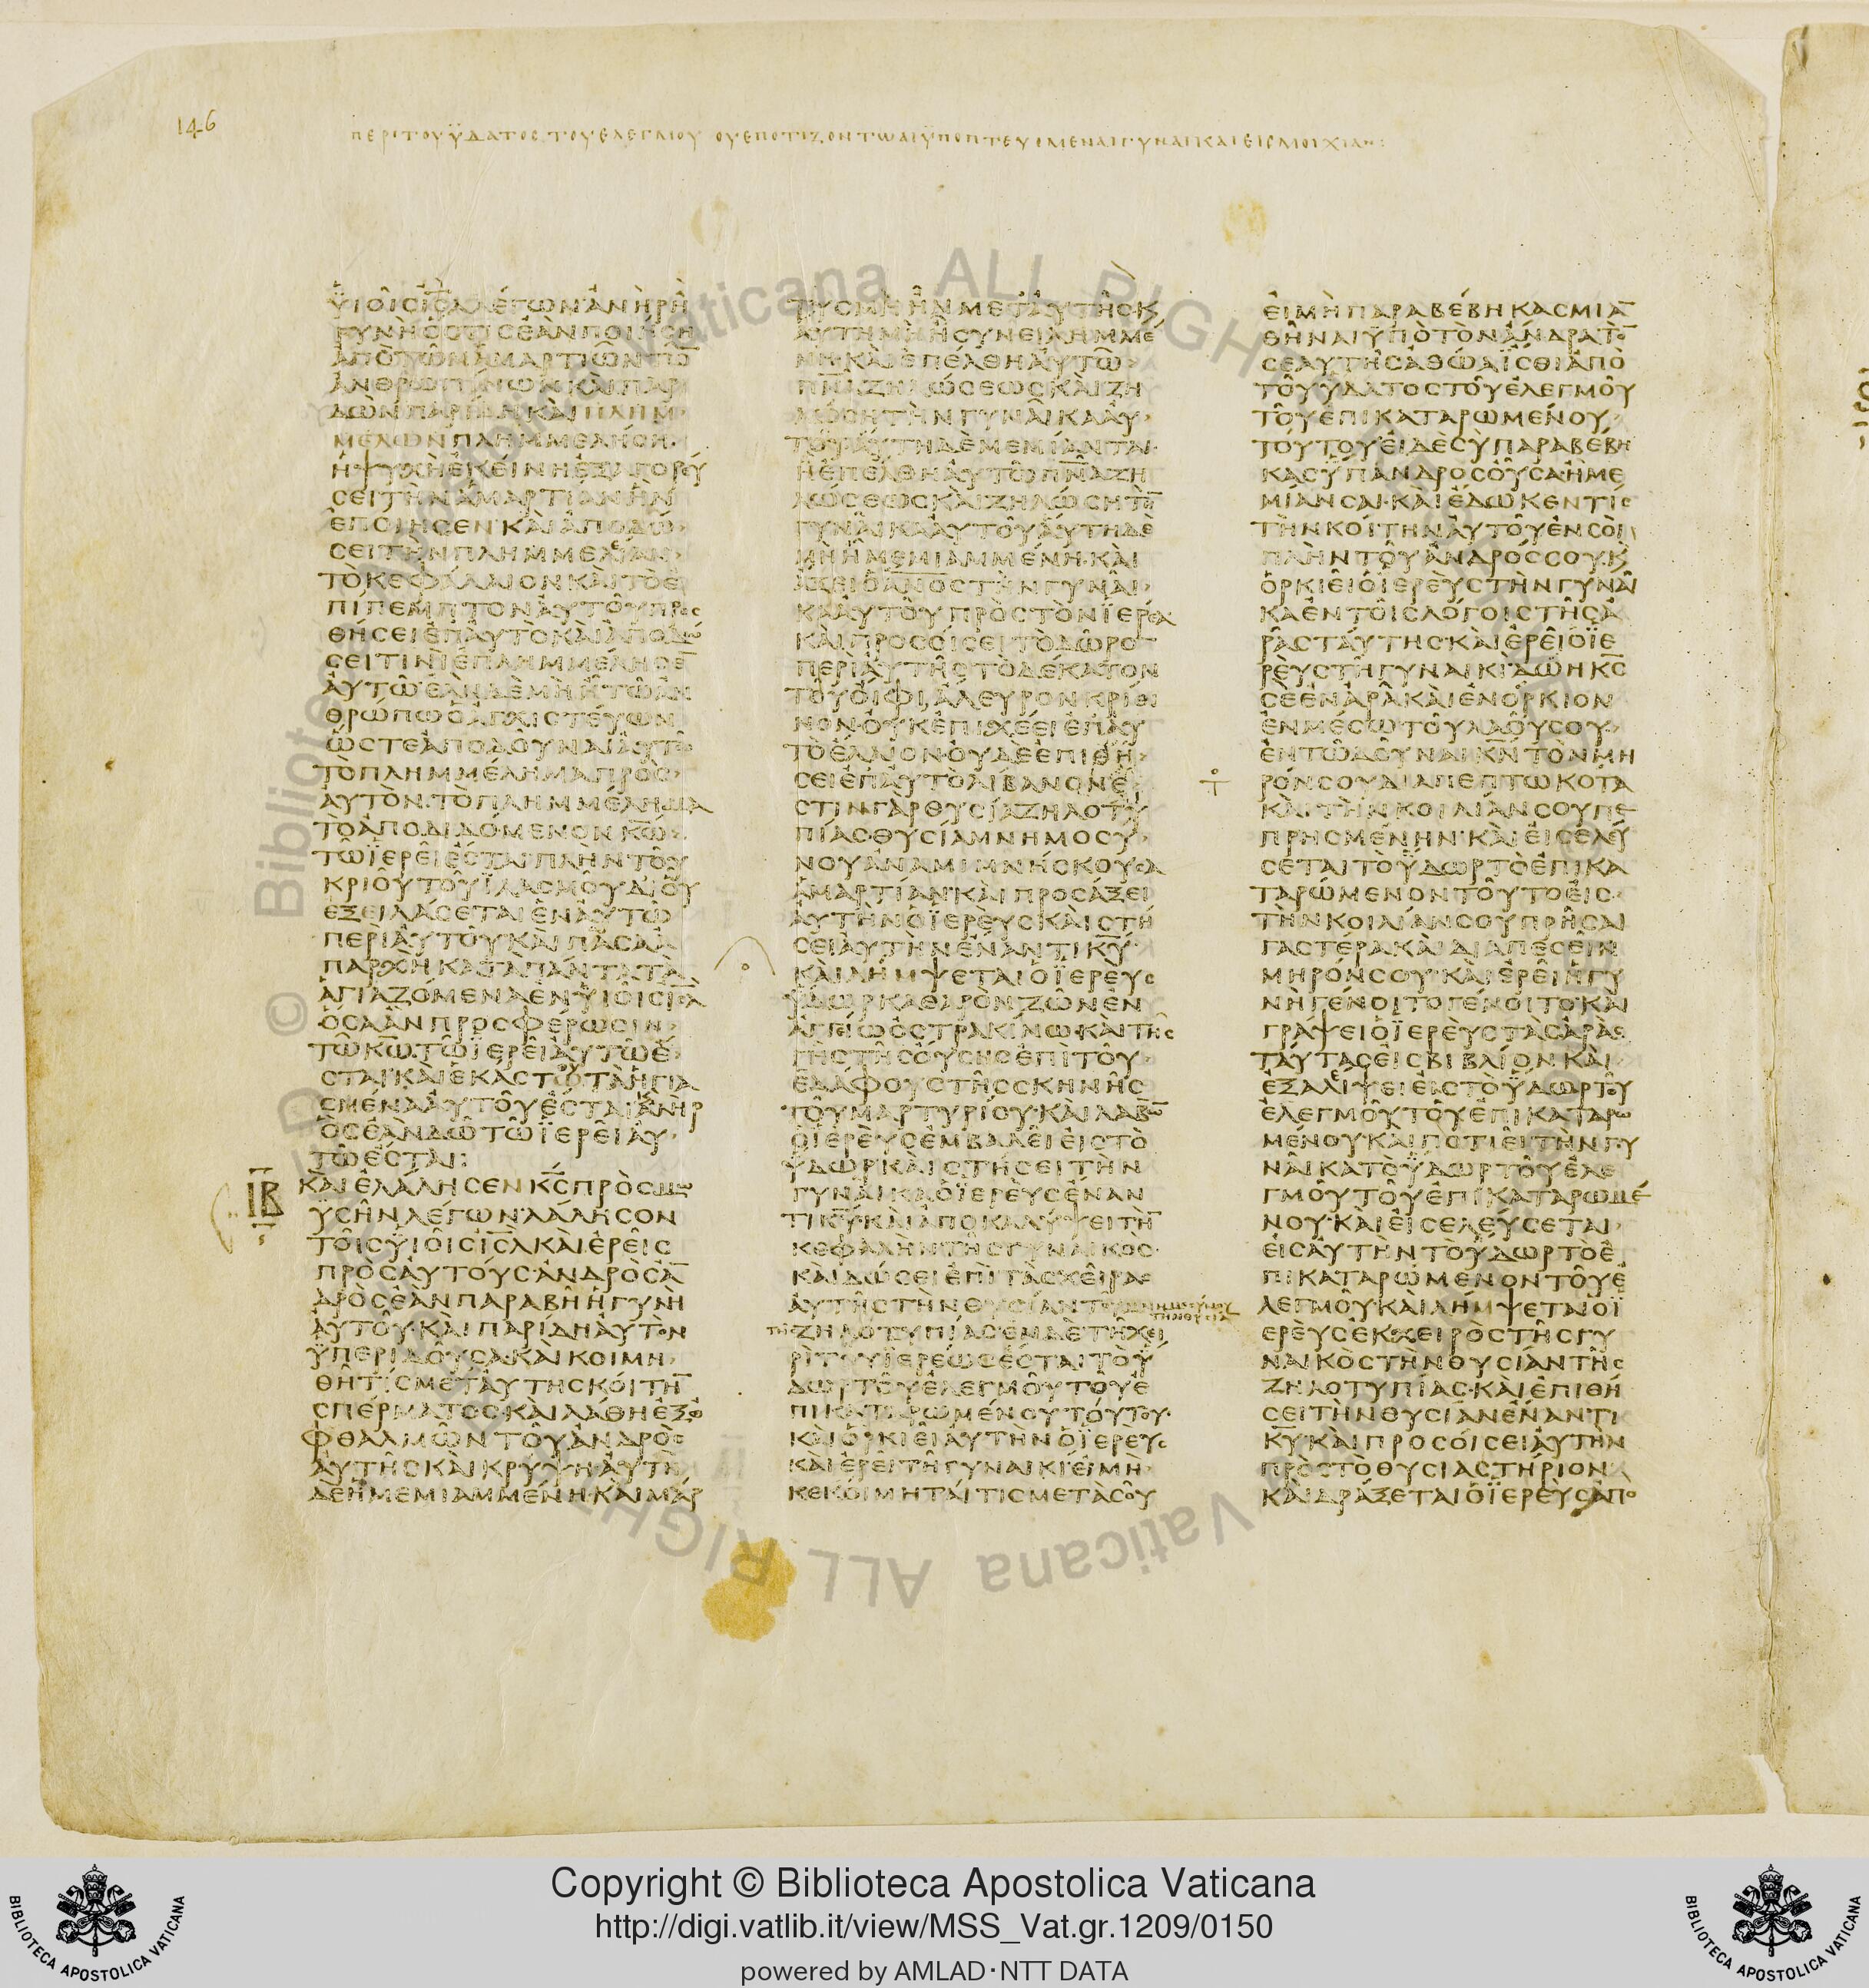 146
ΠΕΡΙ ΤΟΥ ΫΔΑΤΟΣ ΤΟΥ ΕΛΕΓΜΟΥ ΟΥ ΕΠΟΤΙΖΟΝ ΤΩ ΑΙ ΫΠΟΠΤΕΥΟΜΕΝΑΙ ΓΥΝΑΙΚΑΙ ΕΙΣ ΜΟΙΧΙΑΝ:
ΫΙΟΙΣ ΙΣΛ ΛΕΓΩΝ ΑΝΗΡ Η
ΓΥΝΗ ΟΣΤΙΣ ΕΑΝ ΠΟΙΗΣΗ
ΑΠΟ ΤΩΝ ΑΜΑΡΤΙΩΝ ΤΩ̅
ΑΝΘΡΩΠΙΝΩΝ ΚΑΙ ΠΑΡΙ
ΔΩΝ ΠΑΡΙΔΗ ΚΑΙ ΠΛΗΜ
ΜΕΛΩΝ ΠΛΗΜΜΕΛΗΣΗ
Η ΨΥΧΗ ΕΚΕΙΝΗ ΕΞΑΓΟΡΕΥ
ΣΕΙ ΤΗΝ ΑΜΑΡΤΙΑΝ ΗΝ
ΕΠΟΙΗΣΕΝ ΚΑΙ ΑΠΟΔΩ
ΣΕΙ ΤΗΝ ΠΛΗΜΜΕΛΕΙΑΝ
ΤΟ ΚΕΦΑΛΑΙΟΝ ΚΑΙ ΤΟ Ε
ΠΙΠΕΜΠΤΟΝ ΑΥΤΟΥ ΠΡΟΣ
ΘΗΣΕΙ ΕΠ ΑΥΤΟ ΚΑΙ ΑΠΟΔΩ
ΣΕΙ ΤΙΝΙ ΕΠΛΗΜΜΕΛΗΣΕ̅
ΑΥΤΩ ΕΑΝ ΔΕ ΜΗ Η ΤΩ ΑΝ
ΘΡΩΠΩ Ο ΑΓΧΙΣΤΕΥΩΝ
ΩΣΤΕ ΑΠΟΔΟΥΝΑΙ ΑΥΤΩ
ΤΟ ΠΛΗΜΜΕΛΗΜΑ ΠΡΟΣ
ΑΥΤΟΝ ΤΟ ΠΛΗΜΜΕΛΗΜΑ
ΤΟ ΑΠΟΔΙΔΟΜΕΝΟΝ ΚΩ
ΤΩ ΪΕΡΕΙ ΕΣΤΑΙ ΠΛΗΝ ΤΟΥ
ΚΡΙΟΥ ΤΟΥ ΪΛΑΣΜΟΥ ΔΙ ΟΥ
ΕΞΕΙΛΑΣΕΤΑΙ ΕΝ ΑΥΤΩ
ΠΕΡΙ ΑΥΤΟΥ ΚΑΙ ΠΑΣΑ Α
ΠΑΡΧΗ ΚΑΤΑ ΠΑΝΤΑ ΤΑ
ΑΓΙΑΖΟΜΕΝΑ ΕΝ ΫΙΟΙΣ ΙΣΛ
ΟΣΑ ΑΝ ΠΡΟΣΦΕΡΩΣΙΝ
ΤΩ ΚΩ ΤΩ ΪΕΡΕΙ ΑΥΤΩ Ε
ΣΤΑΙ ΚΑΙ ΕΚΑΣΤΟΥ ΤΑ ΗΓΙΑ
ΣΜΕΝΑ ΑΥΤΟΥ ΕΣΤΑΙ ΑΝΗΡ
ΟΣ ΕΑΝ ΔΩ ΤΩ ΪΕΡΕΙ ΑΥ
ΤΩ ΕΣΤΑΙ:
ΙΒ ΚΑΙ ΕΛΑΛΗΣΕΝ ΚΣ ΠΡΟΣ ΜΩ
ΫΣΗΝ ΛΕΓΩΝ ΛΑΛΗΣΟΝ
ΤΟΙΣ ΫΙΟΙΣ ΙΣΛ ΚΑΙ ΕΡΕΙΣ
ΠΡΟΣ ΑΥΤΟΥΣ ΑΝΔΡΟΣ Α̅
ΔΡΟΣ ΕΑΝ ΠΑΡΑΒΗ Η ΓΥΝΗ
ΑΥΤΟΥ ΚΑΙ ΠΑΡΙΔΗ ΑΥΤΟΝ
ΫΠΕΡΙΔΟΥΣΑ ΚΑΙ ΚΟΙΜΗ
ΘΗ ΤΙΣ ΜΕΤ ΑΥΤΗΣ ΚΟΙΤΗ̅
ΣΠΕΡΜΑΤΟΣ ΚΑΙ ΛΑΘΗ ΕΞ Ο
ΦΘΑΛΜΩΝ ΤΟΥ ΑΝΔΡΟΣ
ΑΥΤΗΣ ΚΑΙ ΚΡΥΨΗ ΑΥΤΗ
ΔΕ Η ΜΕΜΙΑΜΜΕΝΗ ΚΑΙ ΜΑΡ
ΤΥΣ ΜΗ ΗΝ ΜΕΤ ΑΥΤΗΣ Κ,
ΑΥΤΗ ΜΗ Η ΣΥΝΕΙΛΗΜΜΕ
ΝΗ ΚΑΙ ΕΠΕΛΘΗ ΑΥΤΩ
ΠΝΑ ΖΗΛΩΣΕΩΣ ΚΑΙ ΖΗ
ΛΩΣΗ ΤΗΝ ΓΥΝΑΙΚΑ ΑΥ
ΤΟΥ ΑΥΤΗ ΔΕ ΜΕΜΙΑΝΤΑΙ
Η ΕΠΕΛΘΗ ΑΥΤΩ ΠΝΑ ΖΗ
ΛΩΣΕΩΣ ΚΑΙ ΖΗΛΩΣΗ ΤΗ̅
ΓΥΝΑΙΚΑ ΑΥΤΟΥ ΑΥΤΗ ΔΕ
ΜΗ Η ΜΕΜΙΑΜΜΕΝΗ ΚΑΙ
ΑΞΕΙ Ο ΑΝΟΣ ΤΗΝ ΓΥΝΑΙ
ΚΑ ΑΥΤΟΥ ΠΡΟΣ ΤΟΝ ΪΕΡΕΑ
ΚΑΙ ΠΡΟΣΟΙΣΕΙ ΤΟ ΔΩΡΟΝ
ΠΕΡΙ ΑΥΤΗΣ ΤΟ ΔΕΚΑΤΟΝ
ΤΟΥ ΟΙΦΙ ΑΛΕΥΡΟΝ ΚΡΙΘΙ
ΝΟΝ ΟΥΚ ΕΠΙΧΕΕΙ ΕΠ ΑΥ
ΤΟ ΕΛΑΙΟΝ ΟΥΔΕ ΕΠΙΘΗ
ΣΕΙ ΕΠ ΑΥΤΟ ΛΙΒΑΝΟΝ Ε
ΣΤΙΝ ΓΑΡ ΘΥΣΙΑ ΖΗΛΟΤΥ
ΠΙΑΣ ΘΥΣΙΑ ΜΝΗΜΟΣΥ
ΝΟΥ ΑΝΑΜΙΜΝΗΣΚΟΥΣΑ
ΑΜΑΡΤΙΑΝ ΚΑΙ ΠΡΟΣΑΞΕΙ
ΑΥΤΗΝ Ο ΪΕΡΕΥΣ ΚΑΙ ΣΤΗ
ΣΕΙ ΑΥΤΗΝ ΕΝΑΝΤΙ ΚΥ
ΚΑΙ ΛΗΜΨΕΤΑΙ Ο ΪΕΡΕΥΣ
ΫΔΩΡ ΚΑΘΑΡΟΝ ΖΩΝ ΕΝ
ΑΓΓΙΩ ΟΣΤΡΑΚΙΝΩ ΚΑΙ ΤΗΣ
ΓΗΣ ΤΗΣ ΟΥΣΗΣ ΕΠΙ ΤΟΥ
ΕΔΑΦΟΥΣ ΤΗΣ ΣΚΗΝΗΣ
ΤΟΥ ΜΑΡΤΥΡΙΟΥ ΚΑΙ ΛΑΒΩ̅
Ο ΪΕΡΕΥΣ ΕΜΒΑΛΕΙ ΕΙΣ ΤΟ
ΫΔΩΡ ΚΑΙ ΣΤΗΣΕΙ ΤΗΝ
ΓΥΝΑΙΚΑ Ο ΪΕΡΕΥΣ ΕΝΑΝ
ΤΙ ΚΥ ΚΑΙ ΑΠΟΚΑΛΥΨΕΙ ΤΗ̅
ΚΕΦΑΛΗΝ ΤΗΣ ΓΥΝΑΙΚΟΣ
ΚΑΙ ΔΩΣΕΙ ΕΠΙ ΤΑΣ ΧΕΙΡΑΣ
ΑΥΤΗΣ ΤΗΝ ΘΥΣΙΑΝ ΤΟΥ ΜΝΗΜΟΣΥΝΟΥ ΤΗΝ ΘΥΣΙΑ̅
ΤΗΣ ΖΗΛΟΤΥΠΙΑΣ ΕΝ ΔΕ ΤΗ ΧΕΙ
ΡΙ ΤΟΥ ΪΕΡΕΩΣ ΕΣΤΑΙ ΤΟ Ϋ
ΔΩΡ ΤΟΥ ΕΛΕΓΜΟΥ ΤΟΥ Ε
ΠΙΚΑΤΑΡΩΜΕΝΟΥ ΤΟΥΤΟΥ
ΚΑΙ ΟΡΚΙΕΙ ΑΥΤΗΝ Ο ΪΕΡΕΥΣ
ΚΑΙ ΕΡΕΙ ΤΗ ΓΥΝΑΙΚΙ ΕΙ ΜΗ
ΚΕΚΟΙΜΗΤΑΙ ΤΙΣ ΜΕΤΑ ΣΟΥ
ΕΙ ΜΗ ΠΑΡΑΒΕΒΗΚΑΣ ΜΙΑ̅
ΘΗΝΑΙ ΫΠΟ ΤΟΝ ΑΝΔΡΑ ΤΟ̅
ΣΕΑΥΤΗΣ ΑΘΩΑ ΪΣΘΙ ΑΠΟ
ΤΟΥ ΫΔΑΤΟΣ ΤΟΥ ΕΛΕΓΜΟΥ
ΤΟΥ ΕΠΙΚΑΤΑΡΩΜΕΝΟΥ
ΤΟΥΤΟΥ ΕΙ ΔΕ ΣΥ ΠΑΡΑΒΕΒΗ
ΚΑΣ ΫΠ ΑΝΔΡΟΣ ΟΥΣΑ Η ΜΕ
ΜΙΑΝΣΑΙ ΚΑΙ ΕΔΩΚΕΝ ΤΙΣ
ΤΗΝ ΚΟΙΤΗΝ ΑΥΤΟΥ ΕΝ ΣΟΙ
ΠΛΗΝ ΤΟΥ ΑΝΔΡΟΣ ΣΟΥ Κ,
ΟΡΚΙΕΙ Ο ΙΕΡΕΥΣ ΤΗΝ ΓΥΝΑΙ
ΚΑ ΕΝ ΤΟΙΣ ΛΟΓΟΙΣ ΤΗΣ Α
ΡΑΣ ΤΑΥΤΗΣ ΚΑΙ ΕΡΕΙ Ο ΪΕ
ΡΕΥΣ ΤΗ ΓΥΝΑΙΚΙ ΔΩΗ ΚΣ
ΣΕ ΕΝ ΑΡΑ ΚΑΙ ΕΝΟΡΚΙΟΝ
ΕΝ ΜΕΣΩ ΤΟΥ ΛΑΟΥ ΣΟΥ
ΕΝ ΤΩ ΔΟΥΝΑΙ ΚΝ ΤΟΝ ΜΗ
ΡΟΝ ΣΟΥ ΔΙΑΠΕΠΤΩΚΟΤΑ
ΚΑΙ ΤΗΝ ΚΟΙΛΙΑΝ ΣΟΥ ΠΕ
ΠΡΗΣΜΕΝΗΝ ΚΑΙ ΕΙΣΕΛΕΥ
ΣΕΤΑΙ ΤΟ ΫΔΩΡ ΤΟ ΕΠΙΚΑ
ΤΑΡΩΜΕΝΟΝ ΤΟΥΤΟ ΕΙΣ
ΤΗΝ ΚΟΙΛΙΑΝ ΣΟΥ ΠΡΗΣΑΙ
ΓΑΣΤΕΡΑ ΚΑΙ ΔΙΑΠΕΣΕΙΝ
ΜΗΡΟΝ ΣΟΥ ΚΑΙ ΕΡΕΙ Η ΓΥ
ΝΗ ΓΕΝΟΙΤΟ ΓΕΝΟΙΤΟ ΚΑΙ
ΓΡΑΨΕΙ Ο ΪΕΡΕΥΣ ΤΑΣ ΑΡΑΣ
ΤΑΥΤΑΣ ΕΙΣ ΒΙΒΛΙΟΝ ΚΑΙ
ΕΞΑΛΕΙΨΕΙ ΕΙΣ ΤΟ ΫΔΩΡ ΤΟΥ
ΕΛΕΓΜΟΥ ΤΟΥ ΕΠΙΚΑΤΑΡΩ
ΜΕΝΟΥ ΚΑΙ ΠΟΤΙΕΙ ΤΗΝ ΓΥ
ΝΑΙΚΑ ΤΟ ΫΔΩΡ ΤΟΥ ΕΛΕ
ΓΜΟΥ ΤΟΥ ΕΠΙΚΑΤΑΡΩΜΕ
ΝΟΥ ΚΑΙ ΕΙΣΕΛΕΥΣΕΤΑΙ
ΕΙΣ ΑΥΤΗΝ ΤΟ ΫΔΩΡ ΤΟ Ε
ΠΙΚΑΤΑΡΩΜΕΝΟΝ ΤΟΥ Ε
ΛΕΓΜΟΥ ΚΑΙ ΛΗΜΨΕΤΑΙ Ο Ϊ
ΕΡΕΥΣ ΕΚ ΧΕΙΡΟΣ ΤΗΣ ΓΥ
ΝΑΙΚΟΣ ΤΗΝ ΘΥΣΙΑΝ ΤΗΣ
ΖΗΛΟΤΥΠΙΑΣ ΚΑΙ ΕΠΙΘΗ
ΣΕΙ ΤΗΝ ΘΥΣΙΑΝ ΕΝΑΝΤΙ
ΚΥ ΚΑΙ ΠΡΟΣΟΙΣΕΙ ΑΥΤΗΝ
ΠΡΟΣ ΤΟ ΘΥΣΙΑΣΤΗΡΙΟΝ
ΚΑΙ ΔΡΑΞΕΤΑΙ Ο ΪΕΡΕΥΣ ΑΠΟ
© Biblioteca Apostolica Vaticana ALL RIGHTS RESERVED
Copyright © Biblioteca Apostolica Vaticana
http://digi.vatlib.it/view/MSS_Vat.gr.1209/0150
powered by AMLAD·NTT DATA
BIBLIOTECA APOSTOLICA VATICANA
BIBLIOTECA APOSTOLICA VATICANA